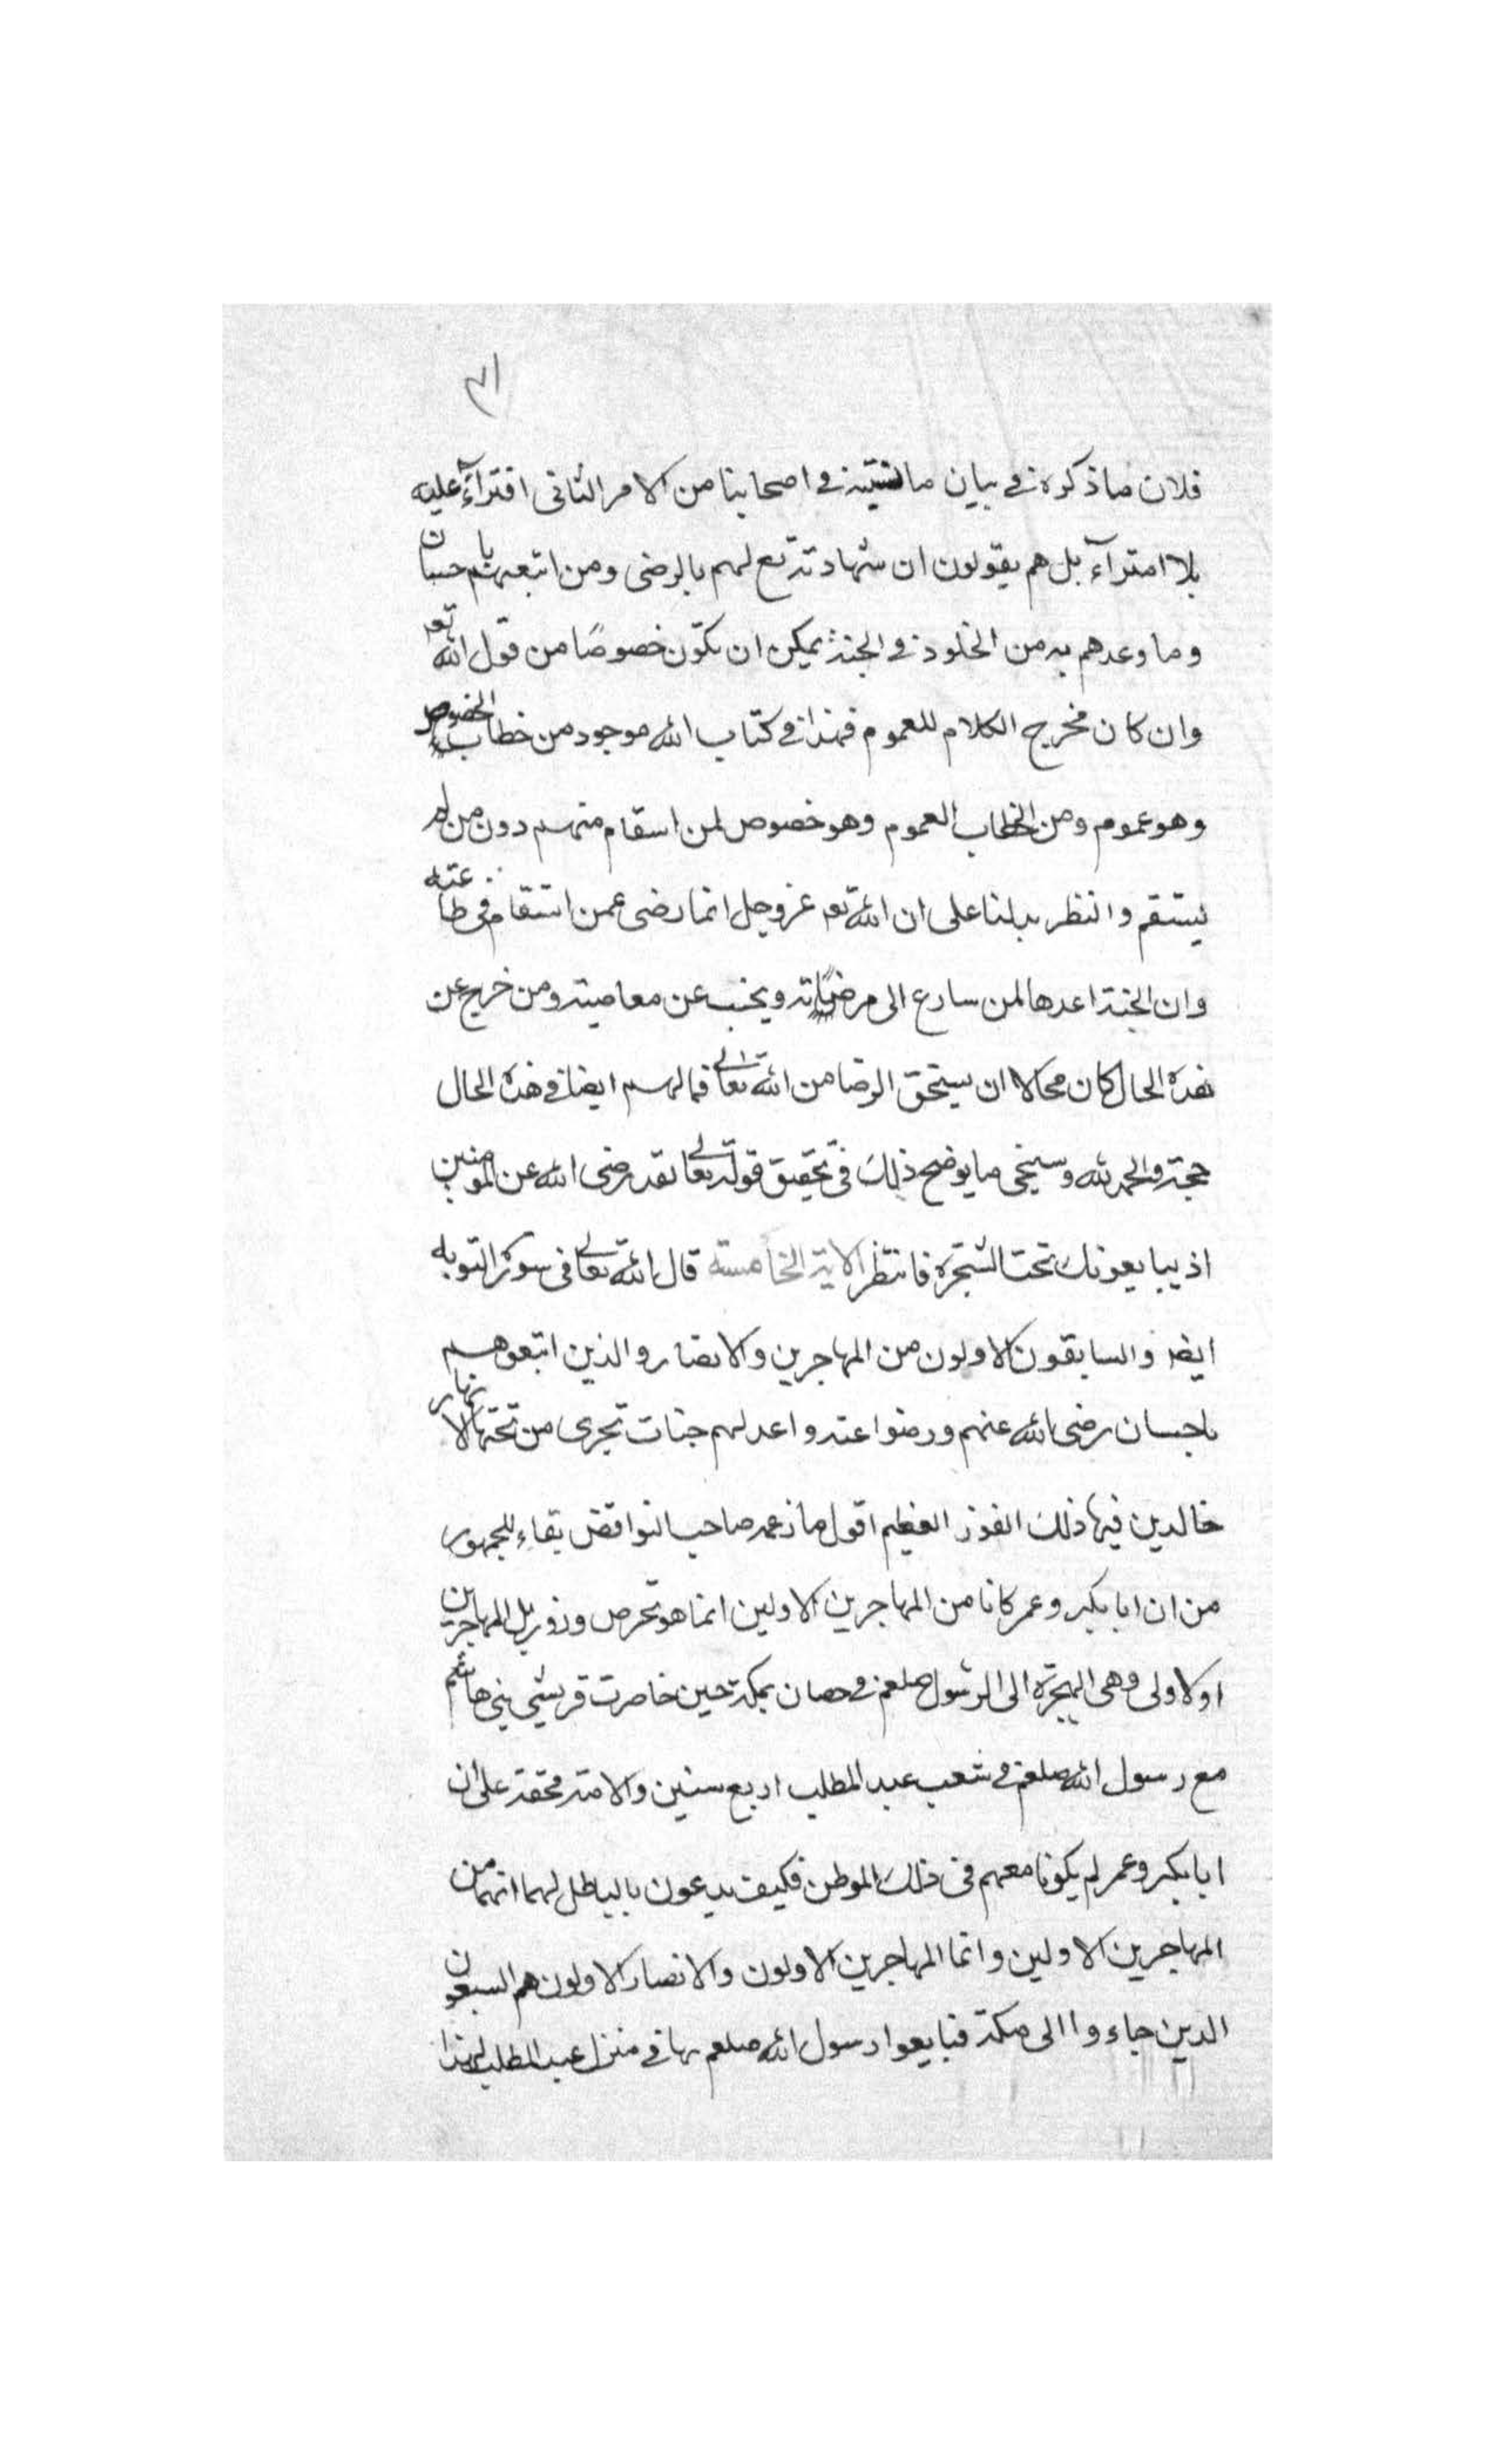 ٣١
فلان ما ذكره في بيان ما نسبته في اصحابنا من الامر الثاني افتراءً عليه
بلا امتراء بل هم يقولون ان شهادته تع لهم بالرضى ومن اتبعهم باحسان
وما وعدهم به من الخلود في الجنة يمكن ان يكون خصوصًا من قول الله تعـ
وان كان مخرج الكلام للعموم فهذا في كتاب الله موجود من خطاب الخصوص
وهو عموم ومن الخطاب العموم وهو خصوص لمن اسقام منهم دون من لم
يستقم والنظر يدلنا على ان الله تعـ عز وجل انما رضى عمن استقام في طاعته
وان الجنة اعدها لمن سارع الى مرضاته ويجنب عن معاصيته ومن خرج عن
هذه الحال كان محالا ان يستحق الرضا من الله تعالى فما لهم ايضا في هذه الحال
حجة والحمد لله وسيجي ما يوضح ذلك في تحقيق قوله تعالى لقد رضى الله عن المومنين
اذ يبايعونك تحت الشجرة فانتظر الاية الخامسة قال الله تعالى في سورة التوبه
ايضا والسابقون الاولون من المهاجرين والانصار والذين اتبعوهم
باحسان رضى الله عنهم ورضوا عنه واعد لهم جنات تجرى من تحتها الانهار
خالدين فيها ذلك الفوز العظيم اقول ما زعمه صاحب النوافض بقاء للجمهور
من ان ابا بكر وعمر كانا من المهاجرين الاولين انما هو تخرص وزور بل المهاجرين
او لاولى وهى الهجرة الى الرسول صلعم في حصان بمكة حين خاصرت قريشي بني هاشم
مع رسول الله صلعم في شعب عبد المطلب اربع سنين والامة محقة على ان
ابا بكر وعمر لم يكونا معهم في ذلك الموطن فكيف يدعون بالباطل لهما انهما من
المهاجرين الاولين وانما المهاجرين الاولون والانصار الاولون هم السبعون
الدين جاءوا الى مكة فبايعوا رسول الله صلعم بها في منزل عبد المطلب لهذا